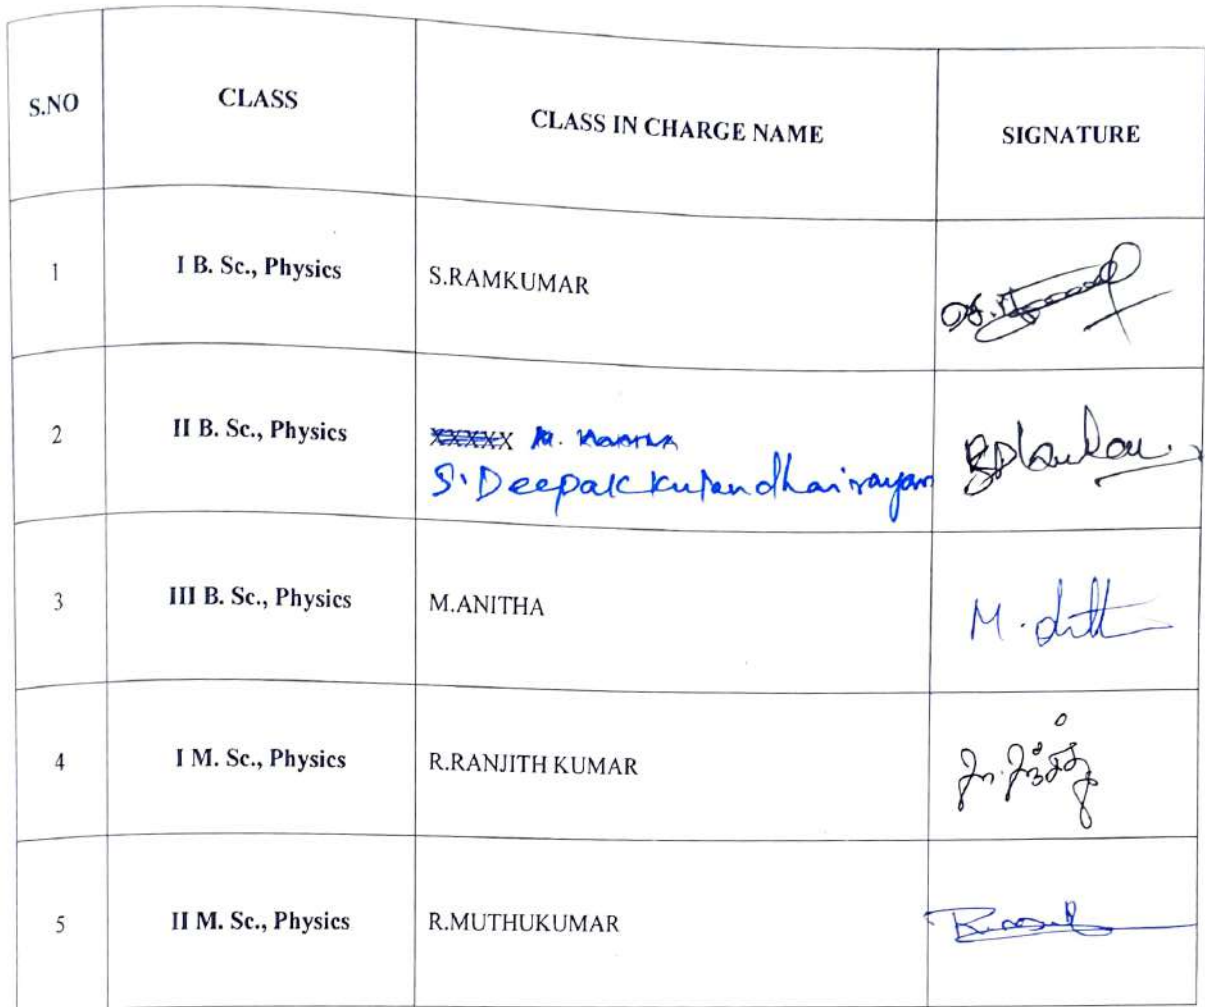 S.NO CLASS CLASS IN CHARGE NAME SIGNATURE
1 I B. Sc., Physics S.RAMKUMAR
2 II B. Sc., Physics
S. Deepak Kulandhairayan
3 III B. Sc., Physics M.ANITHA
4 I M. Sc., Physics R.RANJITH KUMAR
5 II M. Sc., Physics R.MUTHUKUMAR